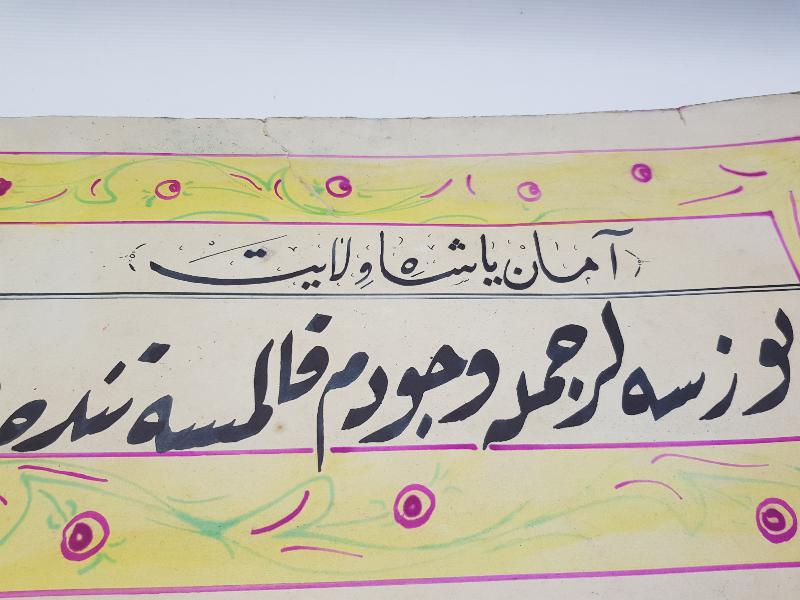 آمان یا شاه ولایت
توزسه لر جمله وجودم قالمسه تنده